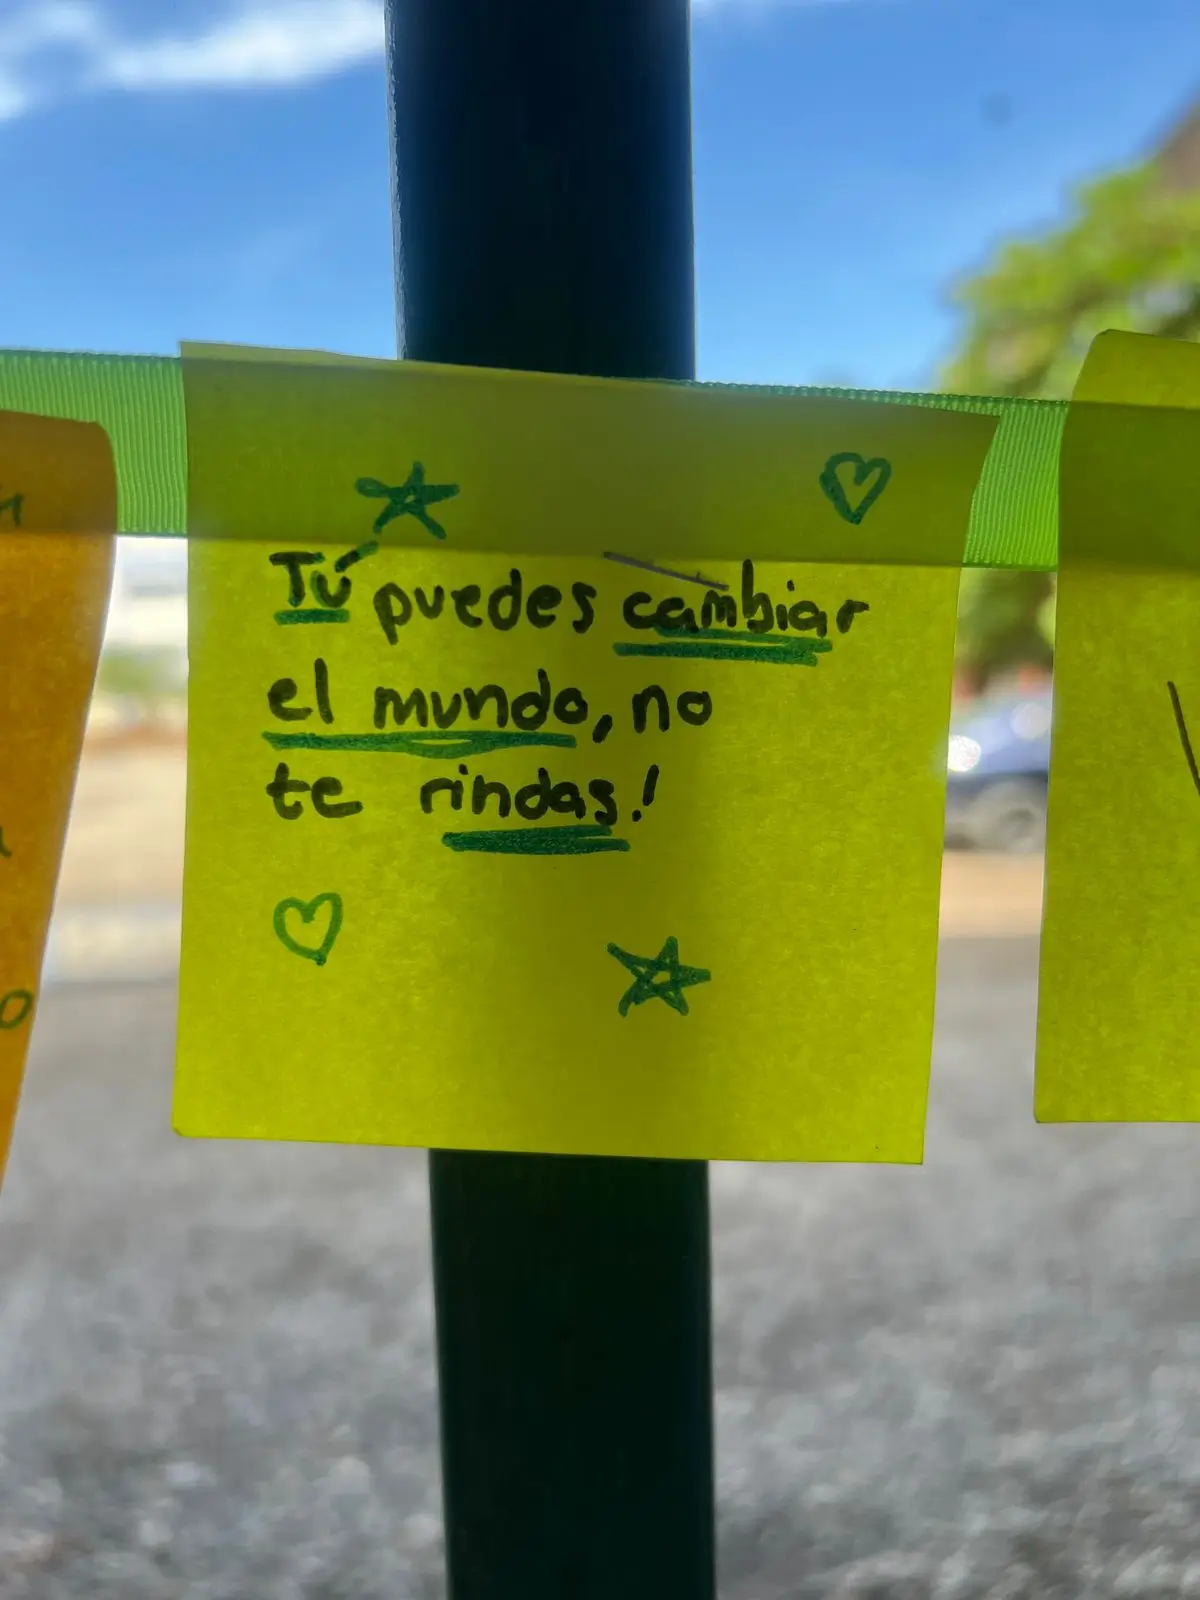 Tú puedes cambiar
el mundo, no
te rindas!